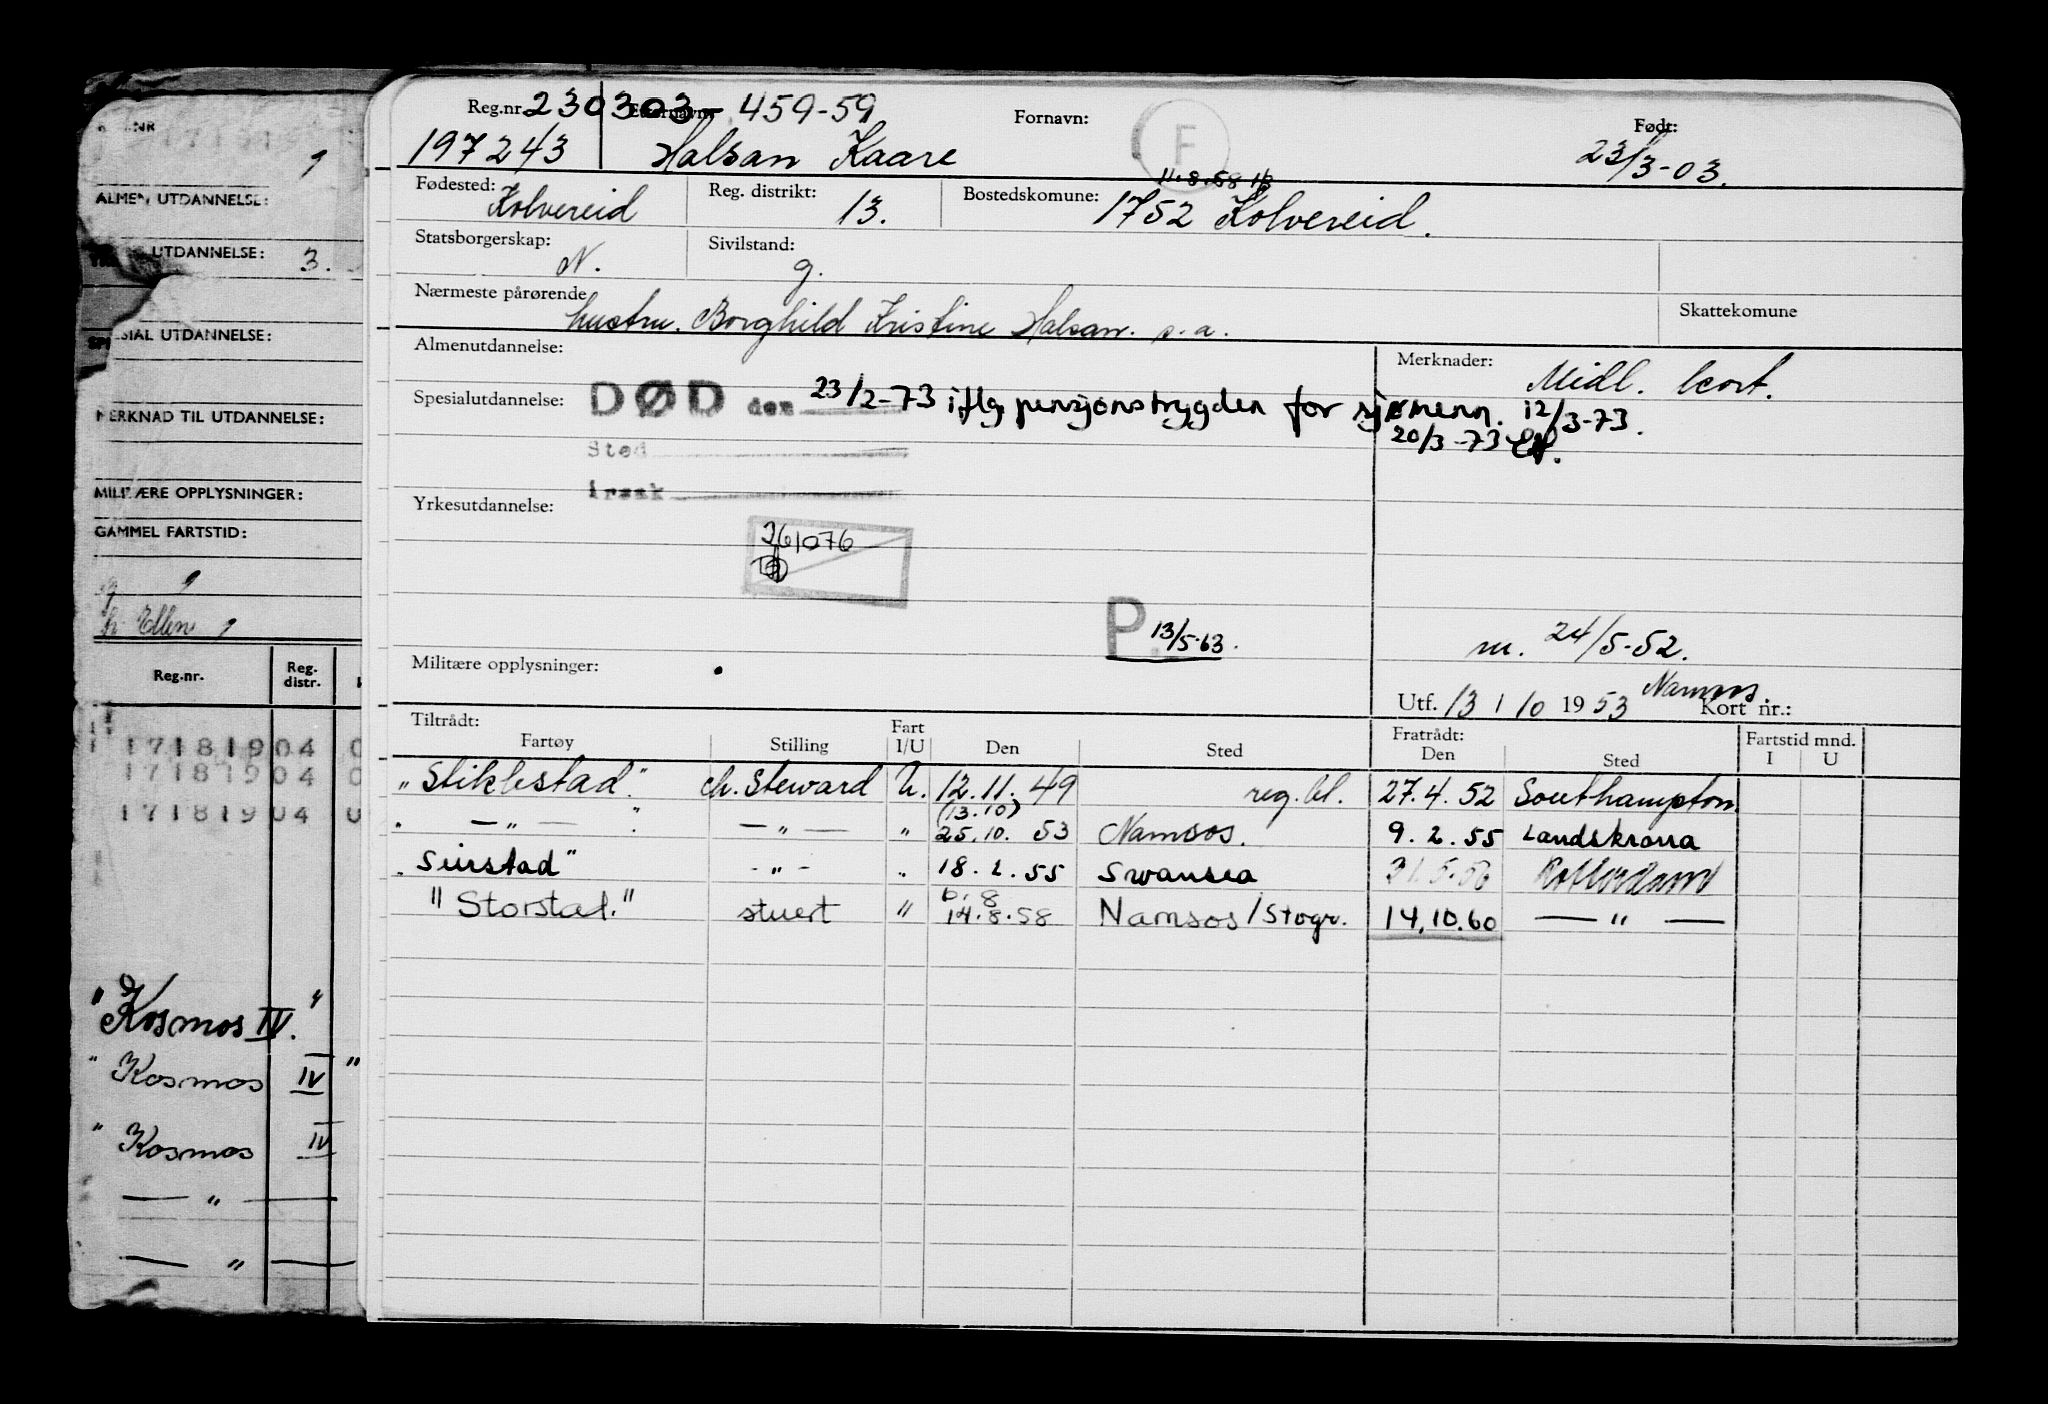 Reg.nr 230303- 459-59 Fornavn: F Født:
197243 Halsan Kaare 23/3-03.
Fødested: Kolvereid Reg. distrikt: 13. Bostedskomune: 11.8.58 1752 Kolvereid.
Statsborgerskap: N. Sivilstand: g.
Nærmeste pårørende hustru. Borghild Kristine Halsan. s.a. Skattekomune
Almenutdannelse: Merknader: Midl. kort.
Spesialutdannelse: DØD den 23/2-73 iflg pensjonstrygden for sjømenn. 12/3-73.
Sted 20/3-73
årsak
Yrkesutdannelse:
361076
P 13/5-63.
m. 24/5-52.
Militære opplysninger:
Namsos.
Utf. 13 / 10 1953 Kort nr.:
Tiltrådt: Fart Fratrådt: Fartstid mnd.
Fartøy Stilling I/U Den Sted Den Sted I U
"Stiklestad" ch. Steward U. 12.11.49 reg.bl. 27.4.52 Southampton
(13.10)
— " — — " — " 25.10. 53 Namsos. 9.2.55 Landskrona
"Siristad" - " - " 18.2.55 Swansea Rotterdam
6.8
"Storstad." stuert " 14.8.58 Namsos/Stogr. 14.10.60 — " —
ALMEN UTDANNELSE:
UTDANNELSE: 3.
SPESIAL UTDANNELSE:
MERKNAD TIL UTDANNELSE:
MILITÆRE OPPLYSNINGER:
GAMMEL FARTSTID:
g
h. Ellen
Reg.nr. Reg. distr.
17181904 0
17181904 0
17181904 0
"Kosmos IV."
"Kosmos IV"
"Kosmos IV
— " —
— " —